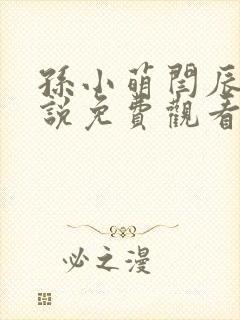 孫小萌閏辰
說免費觀看
必之漫